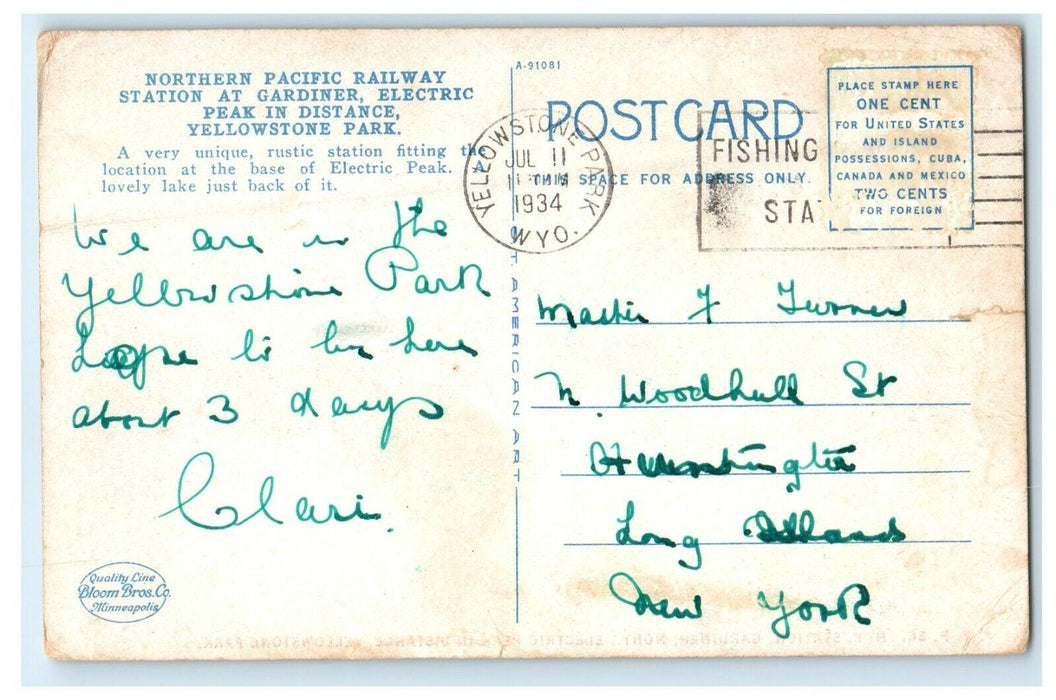 NORTHERN PACIFIC RAILWAY
STATION AT GARDINER, ELECTRIC
PEAK IN DISTANCE,
YELLOWSTONE PARK.
A very unique, rustic station fitting the
location at the base of Electric Peak. A
lovely lake just back of it.
We are in the
Yellowstone Park
hope to be here
about 3 days
Clari.
Quality Line
Bloom Bros. Co.
Minneapolis
A-91081
POST CARD
THIS SPACE FOR ADDRESS ONLY.
YELLOWSTONE PARK
JUL 11
1934
WYO.
FISHING
STA
PLACE STAMP HERE
ONE CENT
FOR UNITED STATES
AND ISLAND
POSSESSIONS, CUBA,
CANADA AND MEXICO
TWO CENTS
FOR FOREIGN
T AMERICAN ART
Master F Turner
N. Woodhull St
Huntington
Long Island
New York